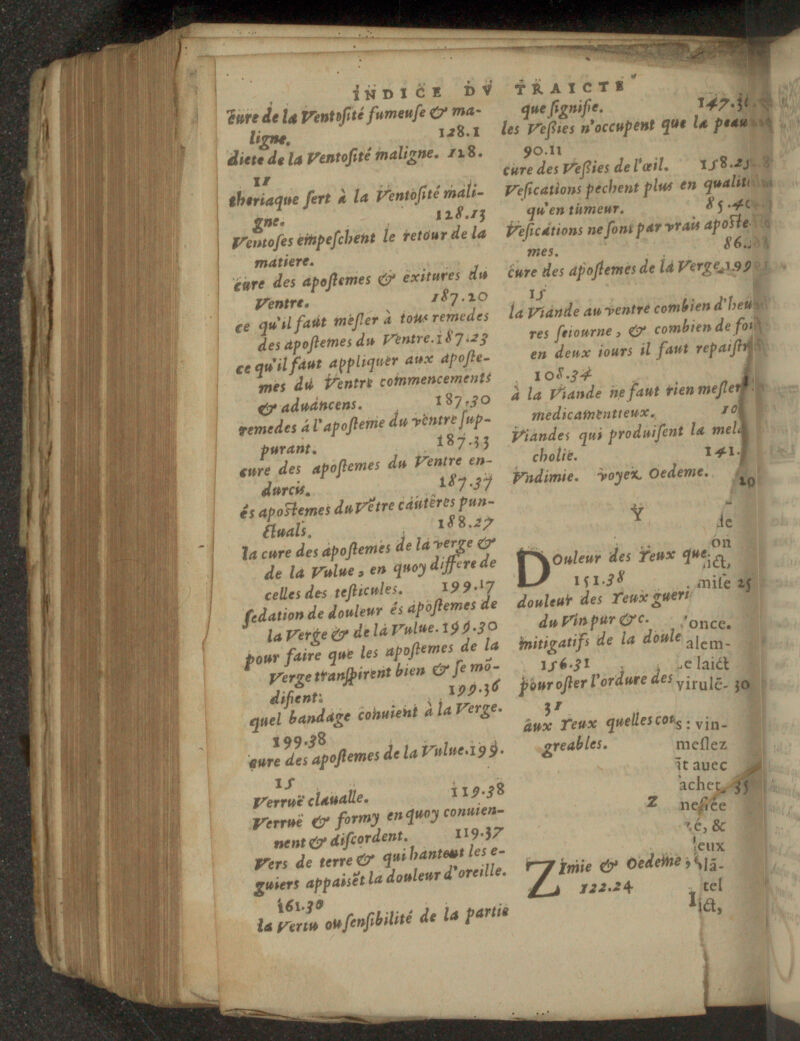 INDICE DV TRAICTE
cure de la Ventosité fumeuse & ma-
ligne. 128.1
diete de la Ventosité maligne. 128.
11
theriaque sert à la Ventosité mali-
gne. 128.13
Ventoses empeschent le retour de la
matiere.
cure des apostemes & exitures du
Ventre. 187.20
ce qu'il faut mesler à tous remedes
des apostemes du Ventre. 187.23
ce qu'il faut appliquer aux aposte-
mes du Ventre commencements
& aduancens. 187.30
remedes à l'aposteme du ventre sup-
purant. 187.33
cure des apostemes du Ventre en-
durcis. 187.37
és apostemes du Vẽtre cauteres pun-
ctuals. 188.27
la cure des apostemes de la verge &
de la Vulue, en quoy differe de
celles des testicules. 199.17
sedation de douleur és apostemes de
la Verge & de la Vulue. 199.30
pour faire que les apostemes de la
Verge transpirent bien & se mo-
difient. 199.36
quel bandage conuient à la Verge.
199.38
cure des apostemes de la Vulue. 199.
15
Verruë claualle. 119.38
Verruë & formy en quoy conuien-
nent & discordent. 119.37
Vers de terre & qui hantent les e-
guiers appaisẽt la douleur d'oreille.
161.30
la Vertu ou sensibilité de la partie
que signifie. 147.
les Vessies n'occupent que la peau
90.11
cure des Vessies de l'œil. 158.
Vesications pechent plus en qualité
qu'en tumeur. 85.40
Vesications ne sont par vrais aposte-
mes. 86.
cure des apostemes de la Verge. 199
15
la Viande au ventre combien d'heu
res seiourne, & combien de foi
en deux iours il faut repaistr
108.34
à la Viande ne faut rien mesler
medicamentieux. 10
Viandes qui produisent la mel
cholie. 141.
Vndimie. voyez Oedeme.
Y
DOuleur des Yeux que
151.38
douleur des Yeux gueri
du Vin pur &c.
mitigatifs de la doule
156.31
pour oster l'ordure des
31
aux Yeux quelles co
greables.
Z
ZImie & Oedeme,
122.24
20
de
on
ict,
mise 25
once.
alem-
le laict
virulẽ- 30
s: vin-
meslez
it auec
35
&
eux
tel
ict,